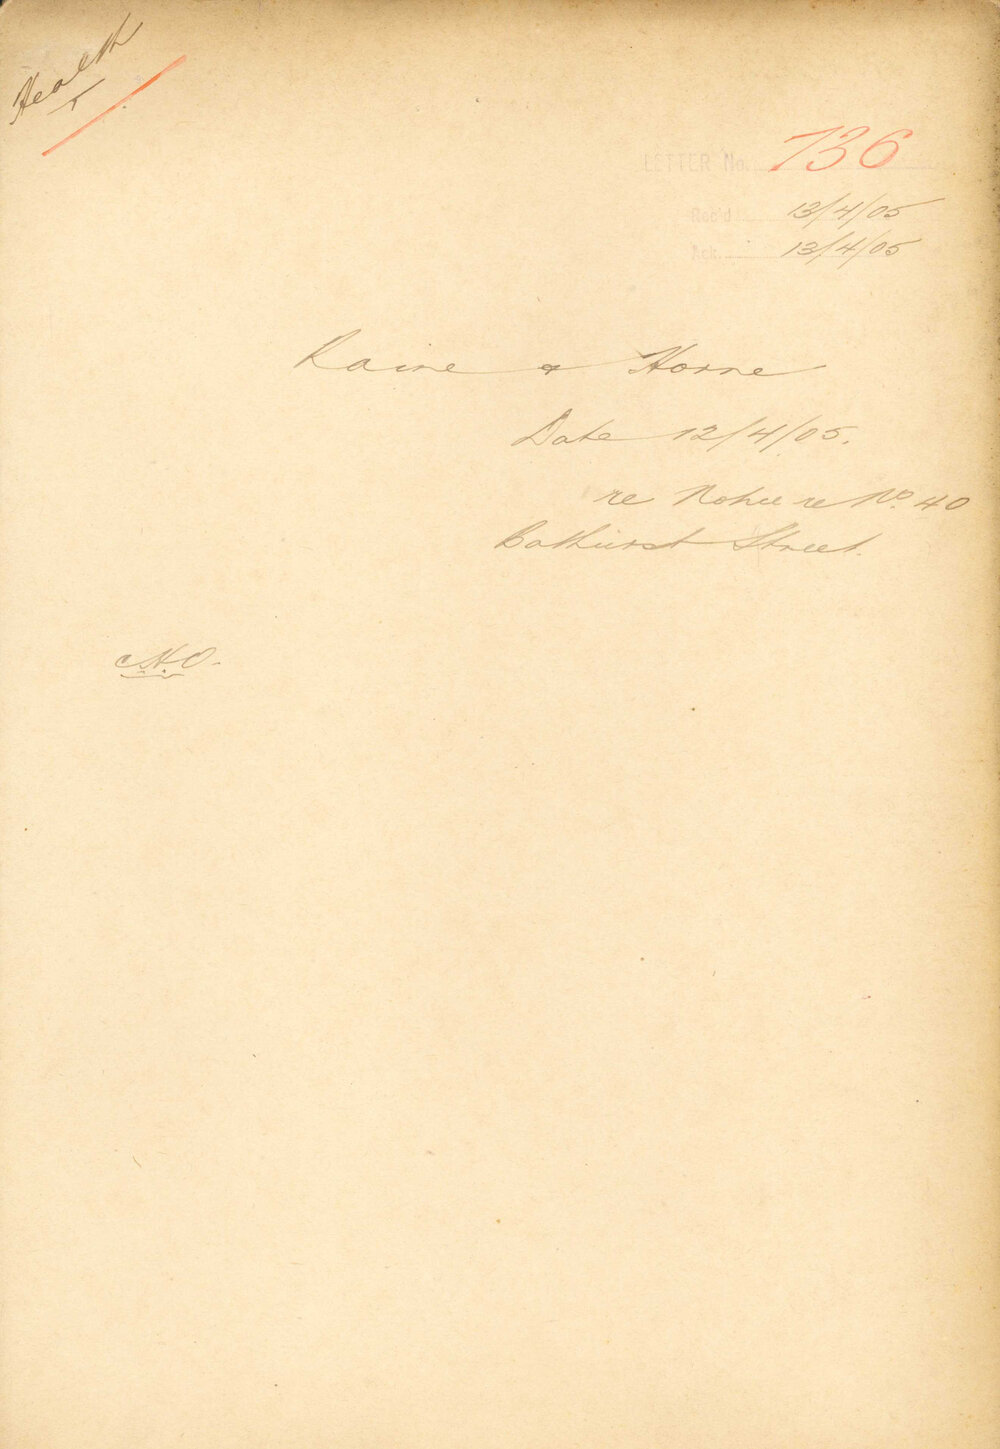 Health
LETTER No. 736
Rec'd 13/4/05
Ack. 13/4/05
Raine & Horne
Date 12/4/05.
re Notice re No. 40
Bathurst Street.